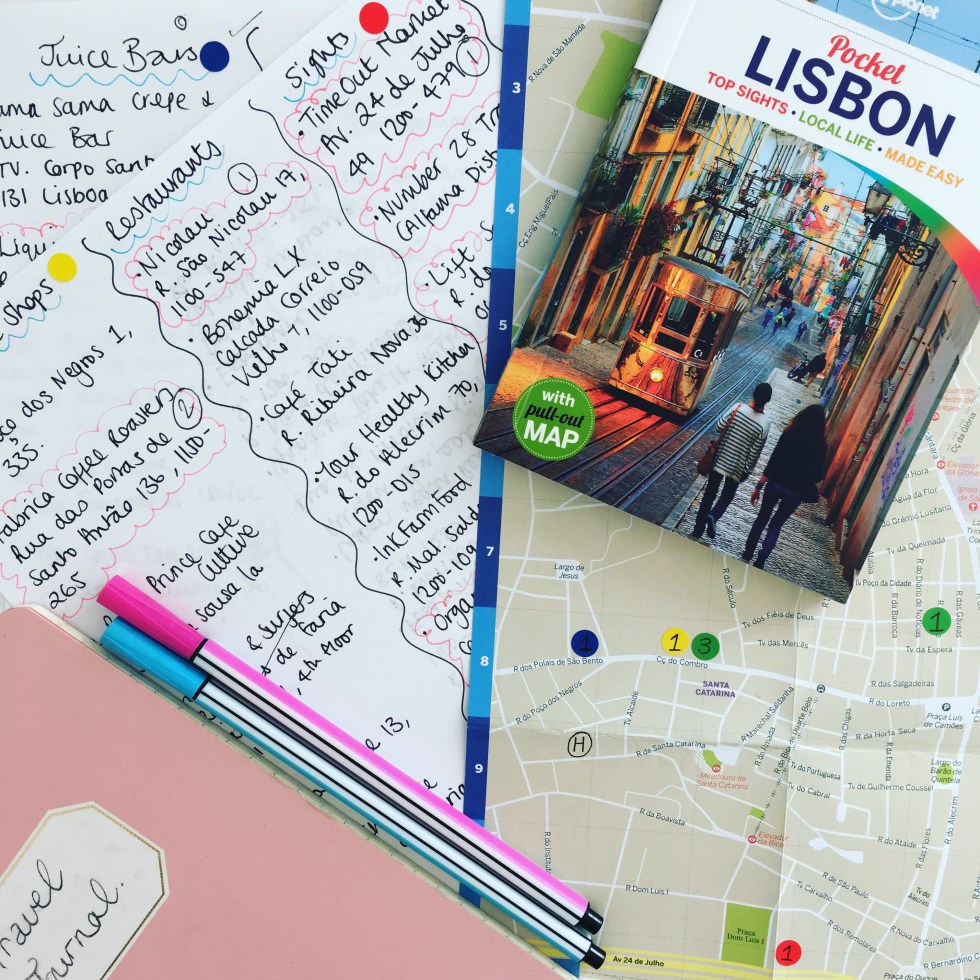 Juice Bars
ama Sama Crepe &
Juice Bar
TV. Corpo Sant
131 Lisboa
Liqui
Shops
oço dos Negros 1,
335.
Fabrica Coffee Roasters
Rua das Portas de
Santo Antão 136, 1150-
265
2
Prince Cafe
Culture
Sousa la
& Surfers
de Faria
, 4th Moor
e 13,
restaurants
1
• Nicolau
R. São Nicolau 17,
1100-547
• Bonamia LX
Calcada Correio
Velho 7, 1100-059
• Café Tati
R. Ribeira Nova 36
• Your Healthy Kitchen
R. do Alecrim 70,
1200 DIS
• InkFarmFood
R. Nat. Salda
1200-109
• Orga
Sights
• TimeOut Market
Av. 24 de Julho
49 1200-479
1
• Number 28 Tra
(Alfama Dist
• Lift
R. do
Travel
Journal.
planet
Pocket
LISBON
TOP SIGHTS • LOCAL LIFE • MADE EASY
with
pull-out
MAP
3
4
5
7
8
9
R Nova de São Mamede
Cç Eng MiguelPais
Largo de
Jesus
R do Século
Tv dos Fiéis de Deus
Tv das Mercês
R dos Polais de São Bento
Cç do Combro
1
1
3
1
SANTA
CATARINA
R do Poço dos Negros
Tv Alcaide
H
R de Santa Catarina
R Marechal Saldanha
R do Almada
Bica de Duarte Belo
Miradouro de
Santa Catarina
R da Boavista
Elevador
da Bica
R do Instituto
R Dom Luis I
Praça
Dom Luis I
1
Av 24 de Julho
Elevador
da Glória
Cç da Glória
R da Hora
Água da Flor
Tv do Grêmio Lusitano
Tv da Queimada
Tv Poço da Cidade
R da Barroca
R do Diário de Notícias
R das Gáveas
Tv da Espera
R das Salgadeiras
R do Loreto
P
Praça Luís
de Camões
R da Horta Seca
R das Chagas
R da Emenda
Largo do
Barão de
Quintela
Tv do Portuguesa
Tv do Cabral
Tv de Guilherme Coussel
R do Ataide
R das Flores
R do Alecrim
R de São Paulo
Tv Carvalho
Tv de
Alecrim
R dos Remolares
R Nova do Carvalho
R Bernardino
Praça do Duque